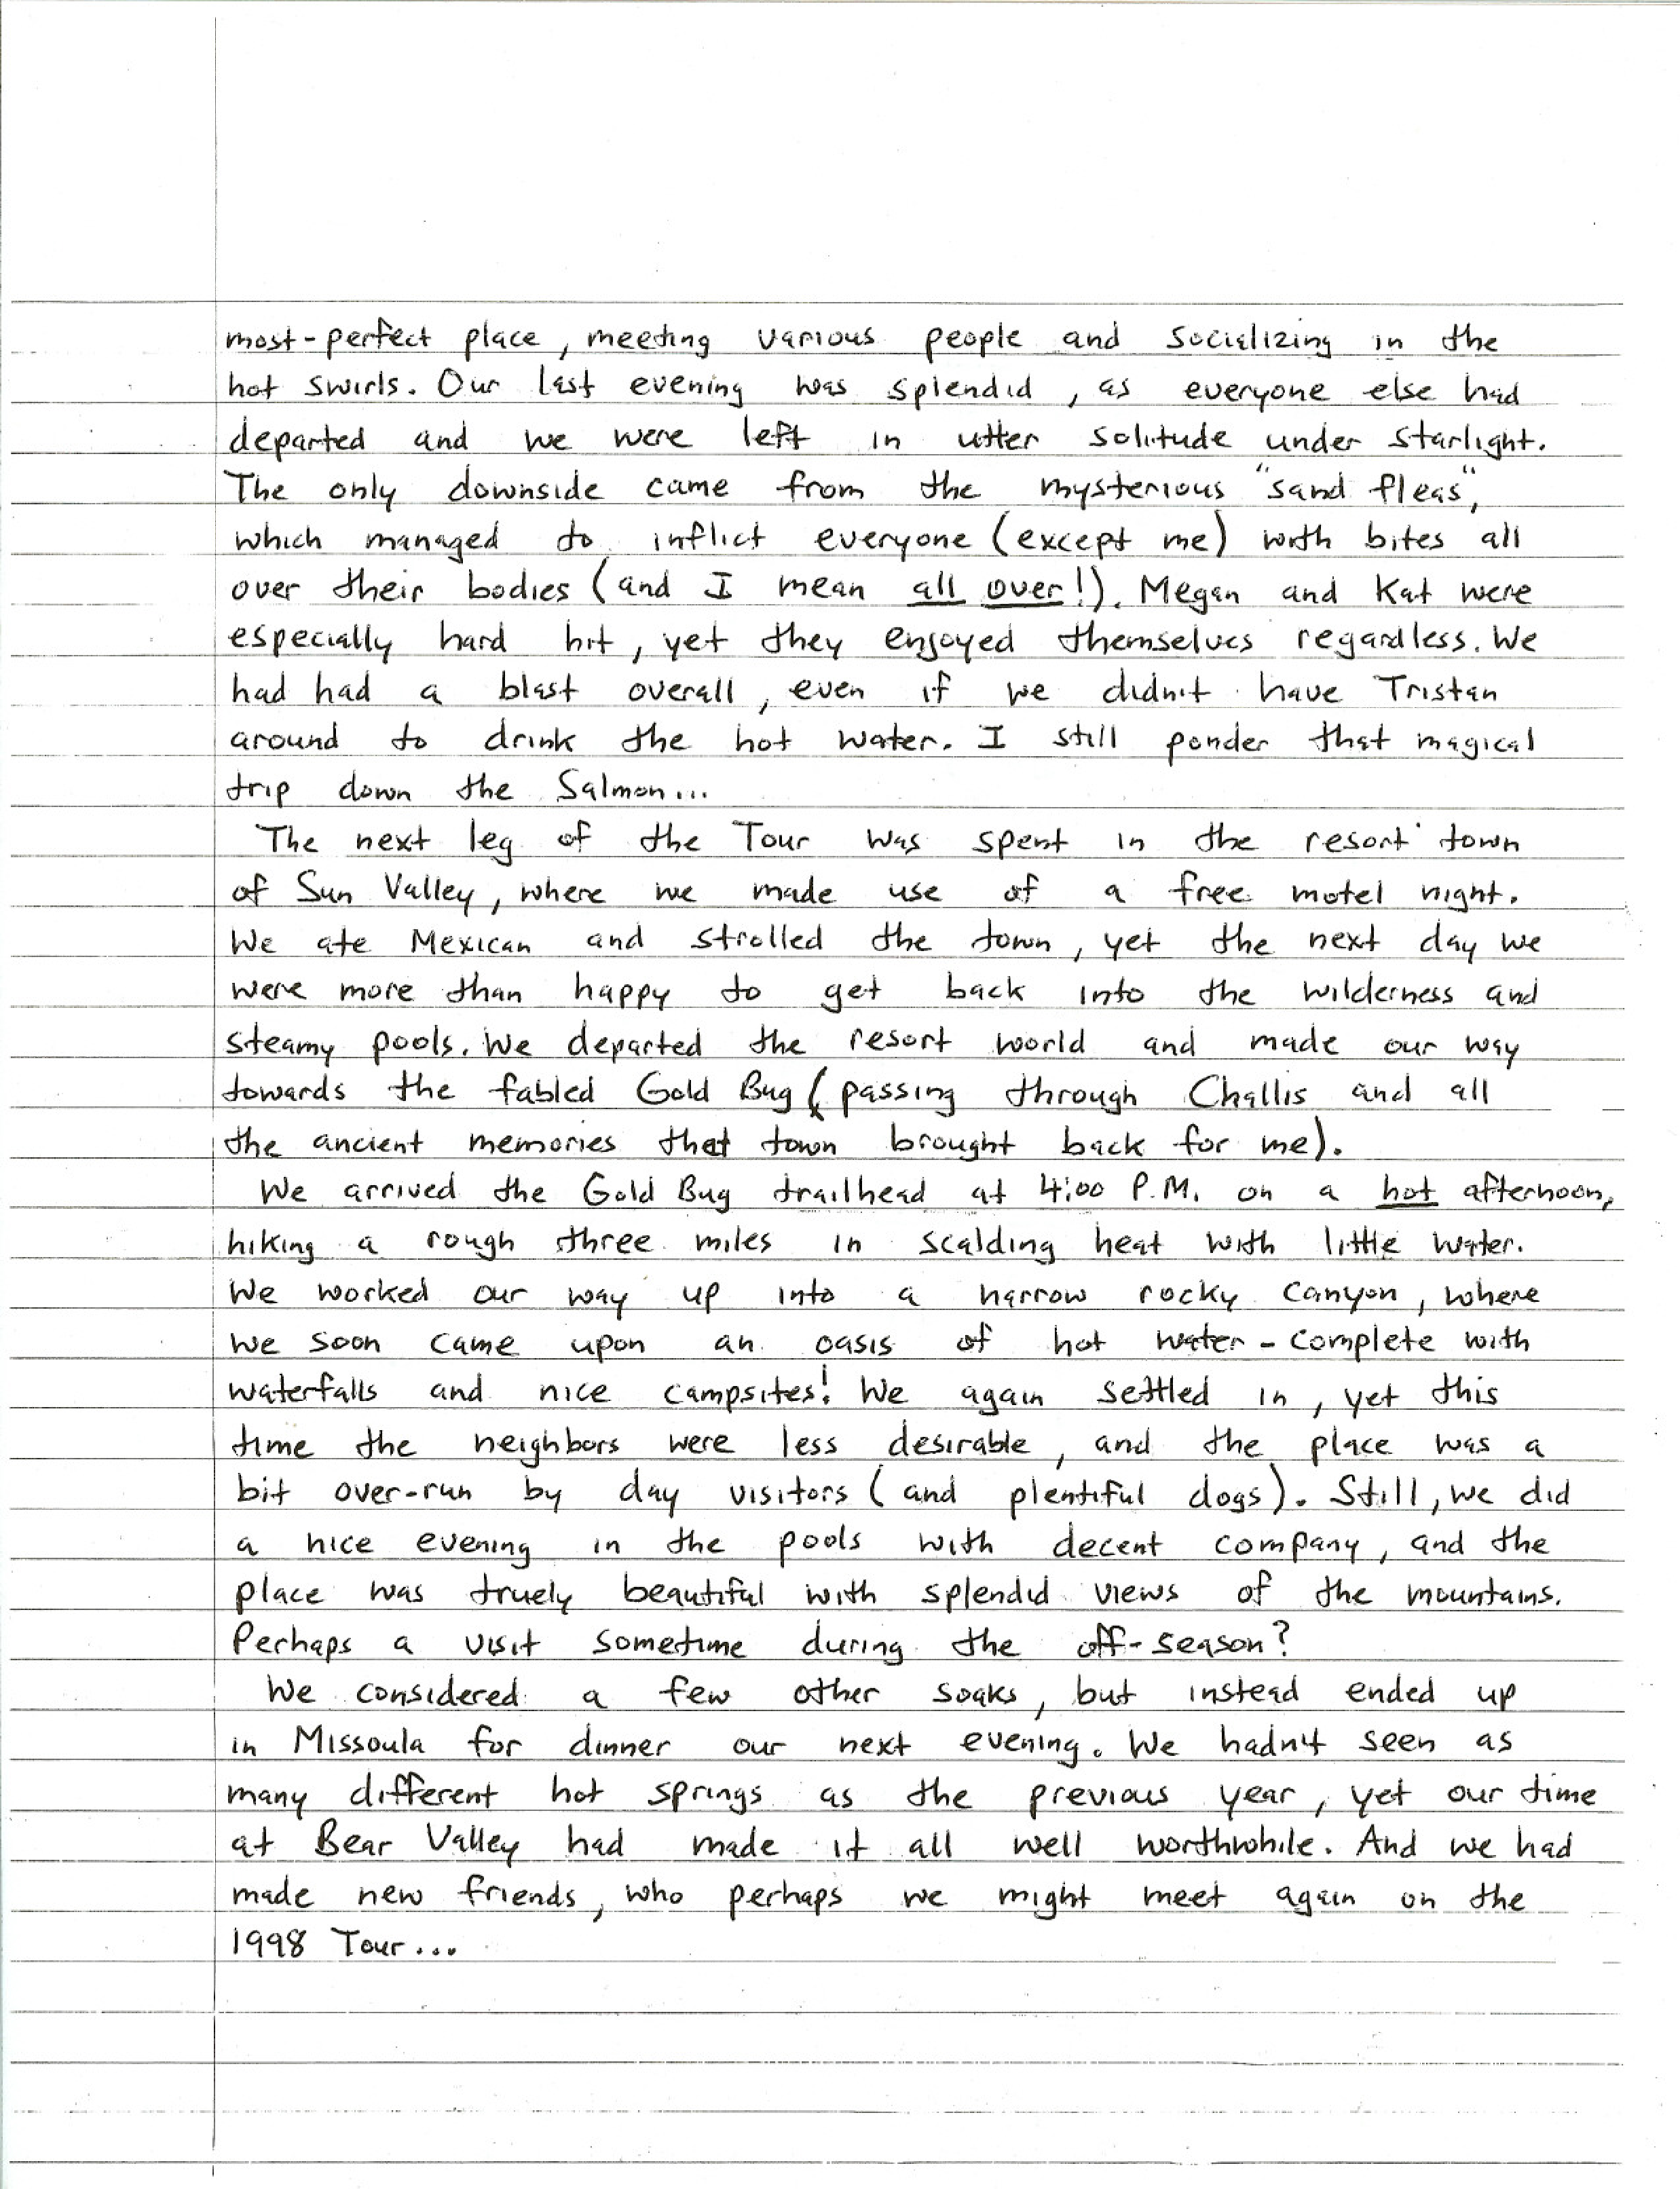 most-perfect place, meeting various people and socializing in the
hot swirls. Our last evening was splendid, as everyone else had
departed and we were left in utter solitude under starlight.
The only downside came from the mysterious "sand fleas",
which managed to inflict everyone (except me) with bites all
over their bodies (and I mean all over!). Megan and Kat were
especially hard hit, yet they enjoyed themselves regardless. We
had had a blast overall, even if we didn't have Tristan
around to drink the hot water. I still ponder that magical
trip down the Salmon...
The next leg of the Tour was spent in the resort town
of Sun Valley, where we made use of a free motel night.
We ate Mexican and strolled the town, yet the next day we
were more than happy to get back into the wilderness and
steamy pools. We departed the resort world and made our way
towards the fabled Gold Bug (passing through Challis and all
the ancient memories that town brought back for me).
We arrived the Gold Bug trailhead at 4:00 P.M. on a hot afternoon,
hiking a rough three miles in scalding heat with little water.
We worked our way up into a narrow rocky canyon, where
we soon came upon an oasis of hot water - complete with
waterfalls and nice campsites! We again settled in, yet this
time the neighbors were less desirable, and the place was a
bit over-run by day visitors (and plentiful dogs). Still, we did
a nice evening in the pools with decent company, and the
place was truely beautiful with splendid views of the mountains.
Perhaps a visit sometime during the off-season?
We considered a few other soaks, but instead ended up
in Missoula for dinner our next evening. We hadn't seen as
many different hot springs as the previous year, yet our time
at Bear Valley had made it all well worthwhile. And we had
made new friends, who perhaps we might meet again on the
1998 Tour...